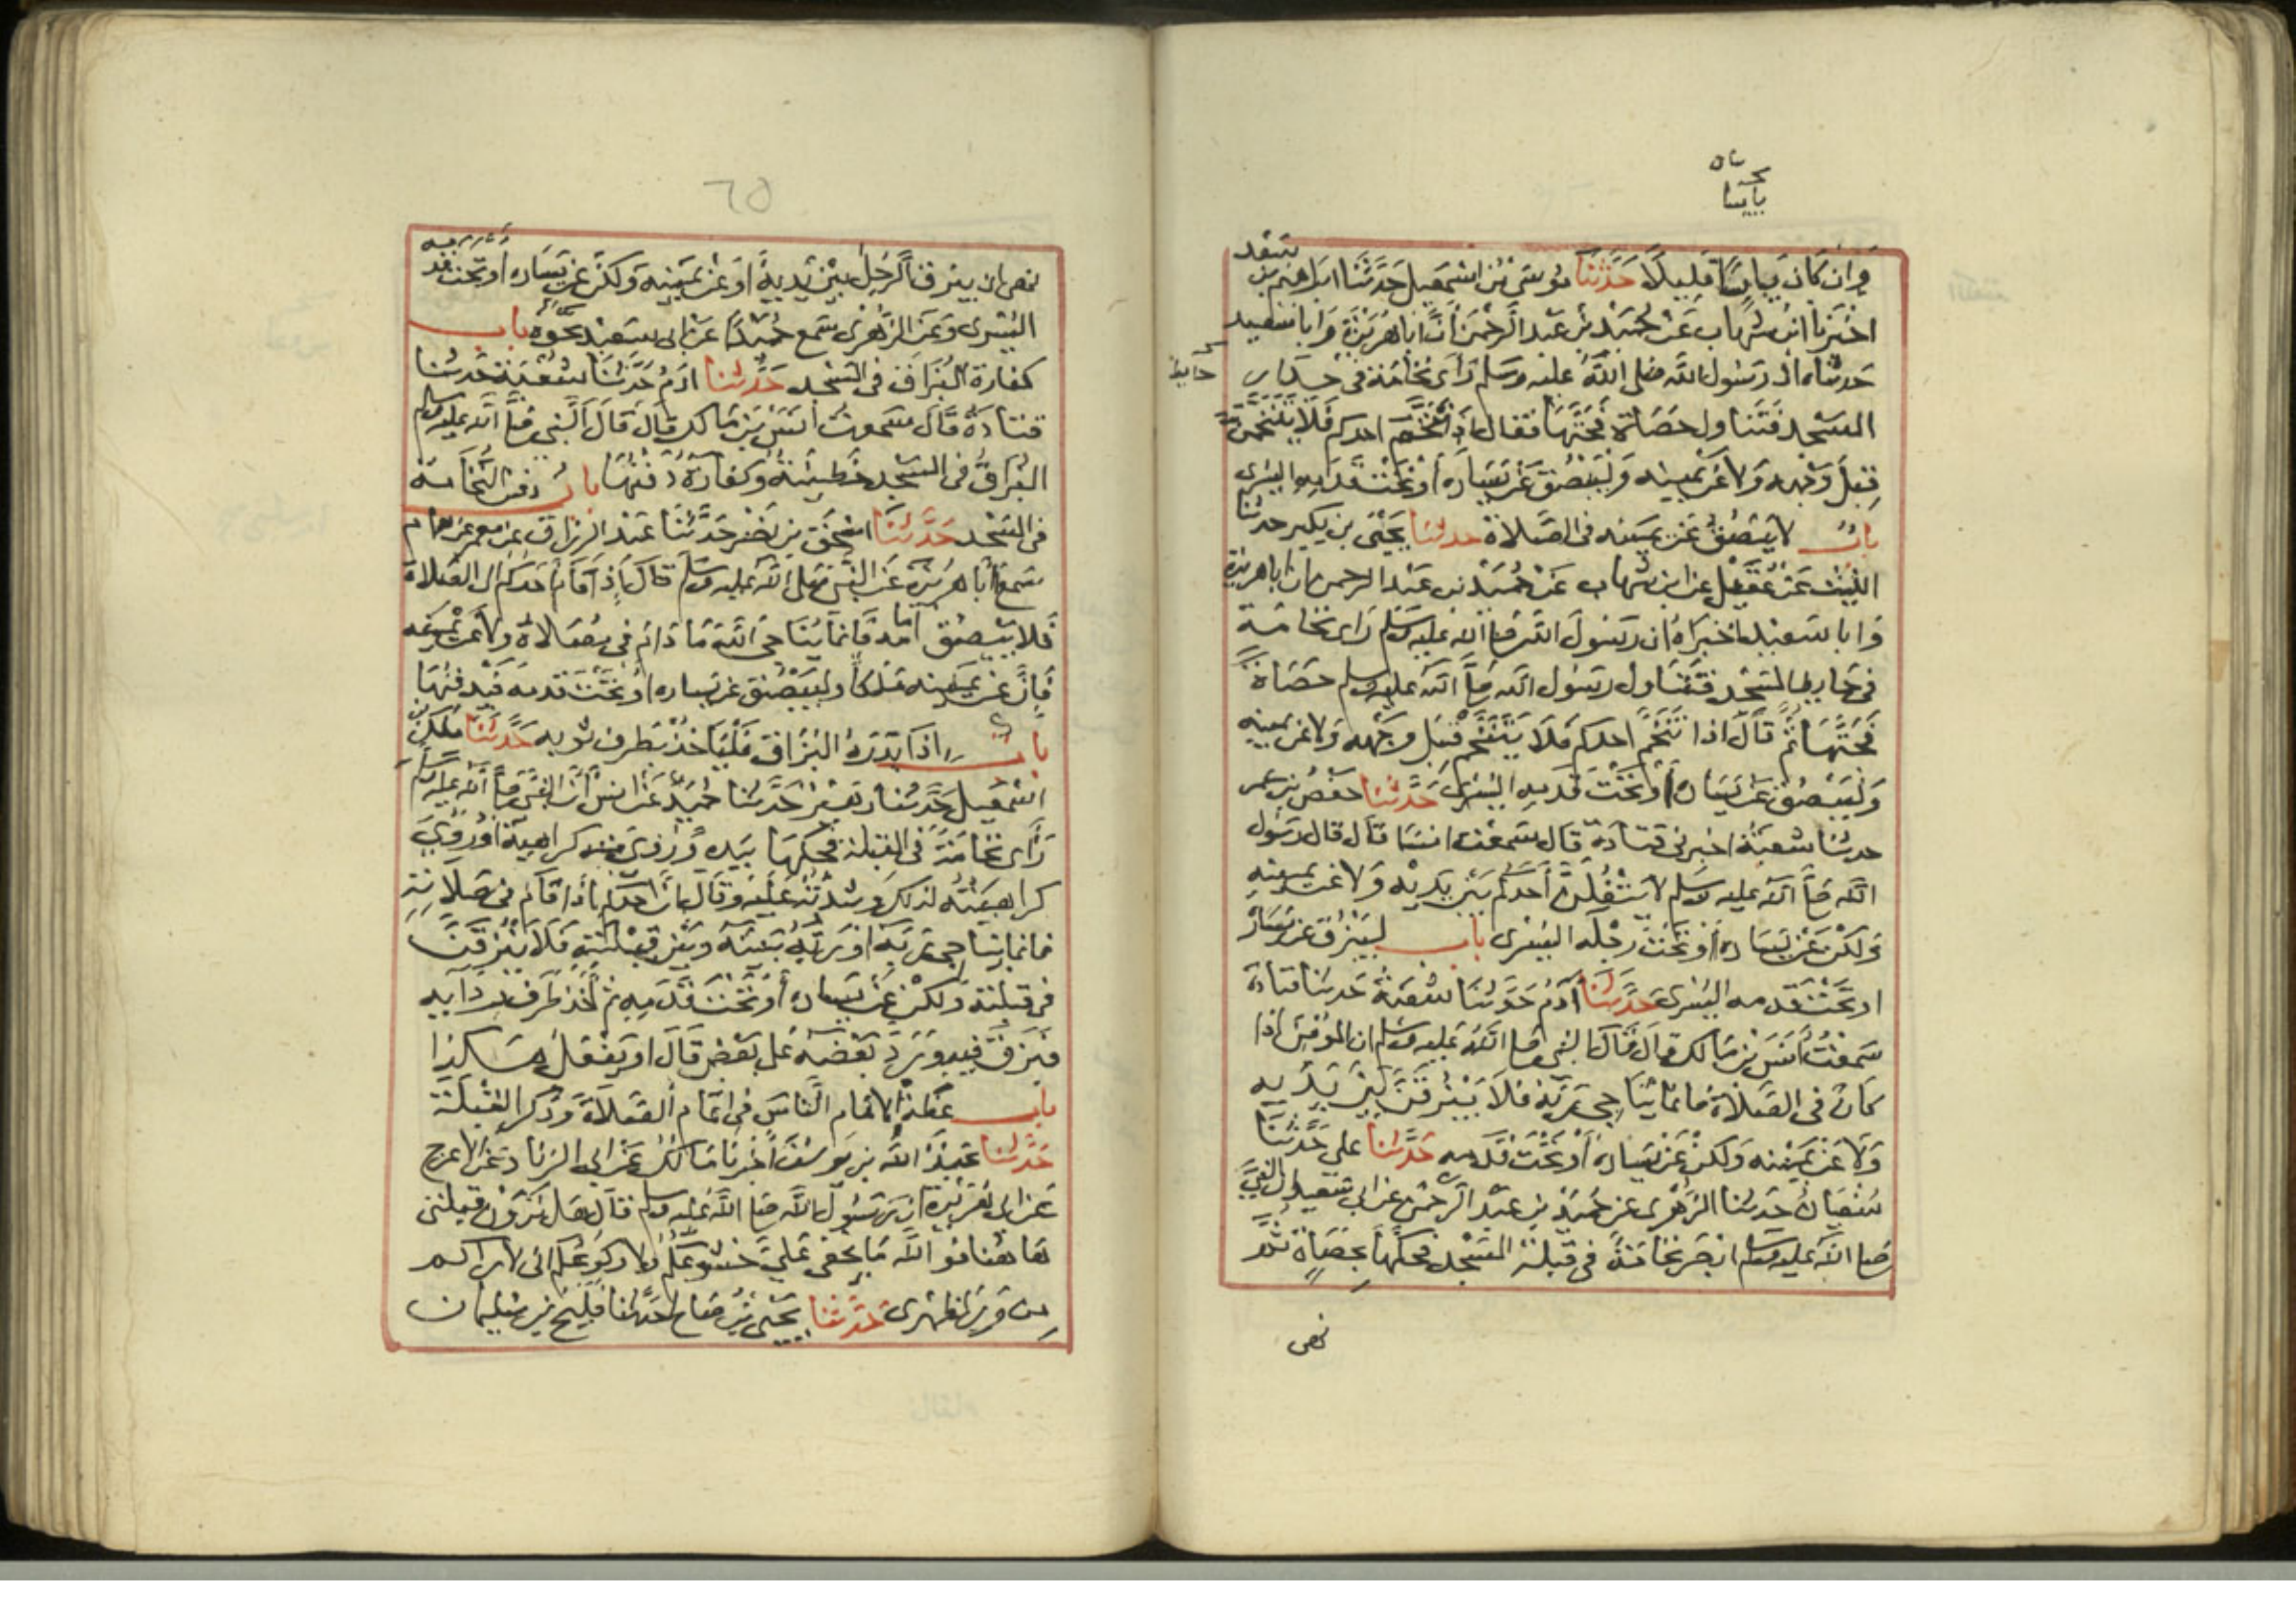 وان كان يابسا فليلا حدثنا موسى بن اسمعيل حدثنا ابراهيم بن سعد
اخبرنا ابن شهاب عن حميد بن عبد الرحمن ان ابا هريرة وابا سعيد
حدثاه ان رسول الله صلى الله عليه وسلم راى نخامة في جدار
المسجد فتناول حصاة فحتها فقال اذا تنخم احدكم فلا يتنخمن
قبل وجهه ولا عن يمينه وليبصق عن يساره او تحت قدمه اليسرى
باب لا يبصق عن يمينه في الصلاة حدثنا يحيى بن بكير حدثنا
الليث عن عقيل عن ابن شهاب عن حميد بن عبد الرحمن ان ابا هريرة
وابا سعيد اخبراه ان رسول الله صلى الله عليه وسلم راى نخامة
في حايط المسجد فتناول رسول الله صلى الله عليه وسلم حصاة
فحتها ثم قال اذا تنخم احدكم فلا يتنخم قبل وجهه ولا عن يمينه
وليبصق عن يساره او تحت قدمه اليسرى حدثنا حفص بن عمر
حدثنا شعبة اخبرني قتادة قال سمعت انسا قال قال رسول
الله صلى الله عليه وسلم لا يتفلن احدكم بين يديه ولا عن يمينه
ولكن عن يساره او تحت رجله اليسرى باب ليبزق عن يساره
او تحت قدمه اليسرى حدثنا آدم حدثنا شعبة حدثنا قتادة
سمعت انس بن مالك قال قال النبي صلى الله عليه وسلم ان المؤمن اذا
كان في الصلاة فانما يناجي ربه فلا يبزقن بين يديه
ولا عن يمينه ولكن عن يساره او تحت قدمه حدثنا علي حدثنا
سفيان حدثنا الزهري عن حميد بن عبد الرحمن عن ابي سعيد ان النبي
صلى الله عليه وسلم ابصر نخامة في قبلة المسجد فحكها بحصاة ثم
نهى
حايط
٦٥
نهى ان يبزق الرجل بين يديه او عن يمينه ولكن عن يساره او تحت قدمه
اليسرى وعن الزهري سمع حميدا عن ابي سعيد نحوه باب
كفارة البزاق في المسجد حدثنا ادم حدثنا شعبة حدثنا
قتادة قال سمعت انس بن مالك قال قال النبي صلى الله عليه وسلم
البزاق في المسجد خطيئة وكفارته دفنها باب دفن النخامة
في المسجد حدثنا اسحق بن نصر حدثنا عبد الرزاق عن معمر عن همام
سمع ابا هريرة عن النبي صلى الله عليه وسلم قال اذا قام احدكم الى الصلاة
فلا يبصق امامه فانما يناجي الله ما دام في مصلاه ولا عن يمينه
فان عن يمينه ملكا وليبصق عن يساره او تحت قدمه فيدفنها
باب اذا بدره البزاق فلياخذ بطرف ثوبه حدثنا ملك بن
اسمعيل حدثنا زهير حدثنا حميد عن انس ان النبي صلى الله عليه وسلم
راى نخامة في القبلة فحكها بيده وروي منه كراهية او روي
كراهيته لذلك وشدته عليه وقال ان احدكم اذا قام في صلاته
فانما يناجي ربه او ربه بينه وبين قبلته فلا يبزقن
في قبلته ولكن عن يساره او تحت قدمه ثم اخذ طرف ردايه
فبزق فيه ورد بعضه على بعض قال او يفعل هكذا
باب عظة الامام الناس في اتمام الصلاة وذكر القبلة
حدثنا عبد الله بن يوسف اخبرنا مالك عن ابي الزناد عن الاعرج
عن ابي هريرة ان رسول الله صلى الله عليه وسلم قال هل ترون قبلتي
هاهنا فوالله ما يخفى علي خشوعكم ولا ركوعكم اني لاراكم
من ورا ظهري حدثنا يحيى بن صالح حدثنا فليح بن سليمان